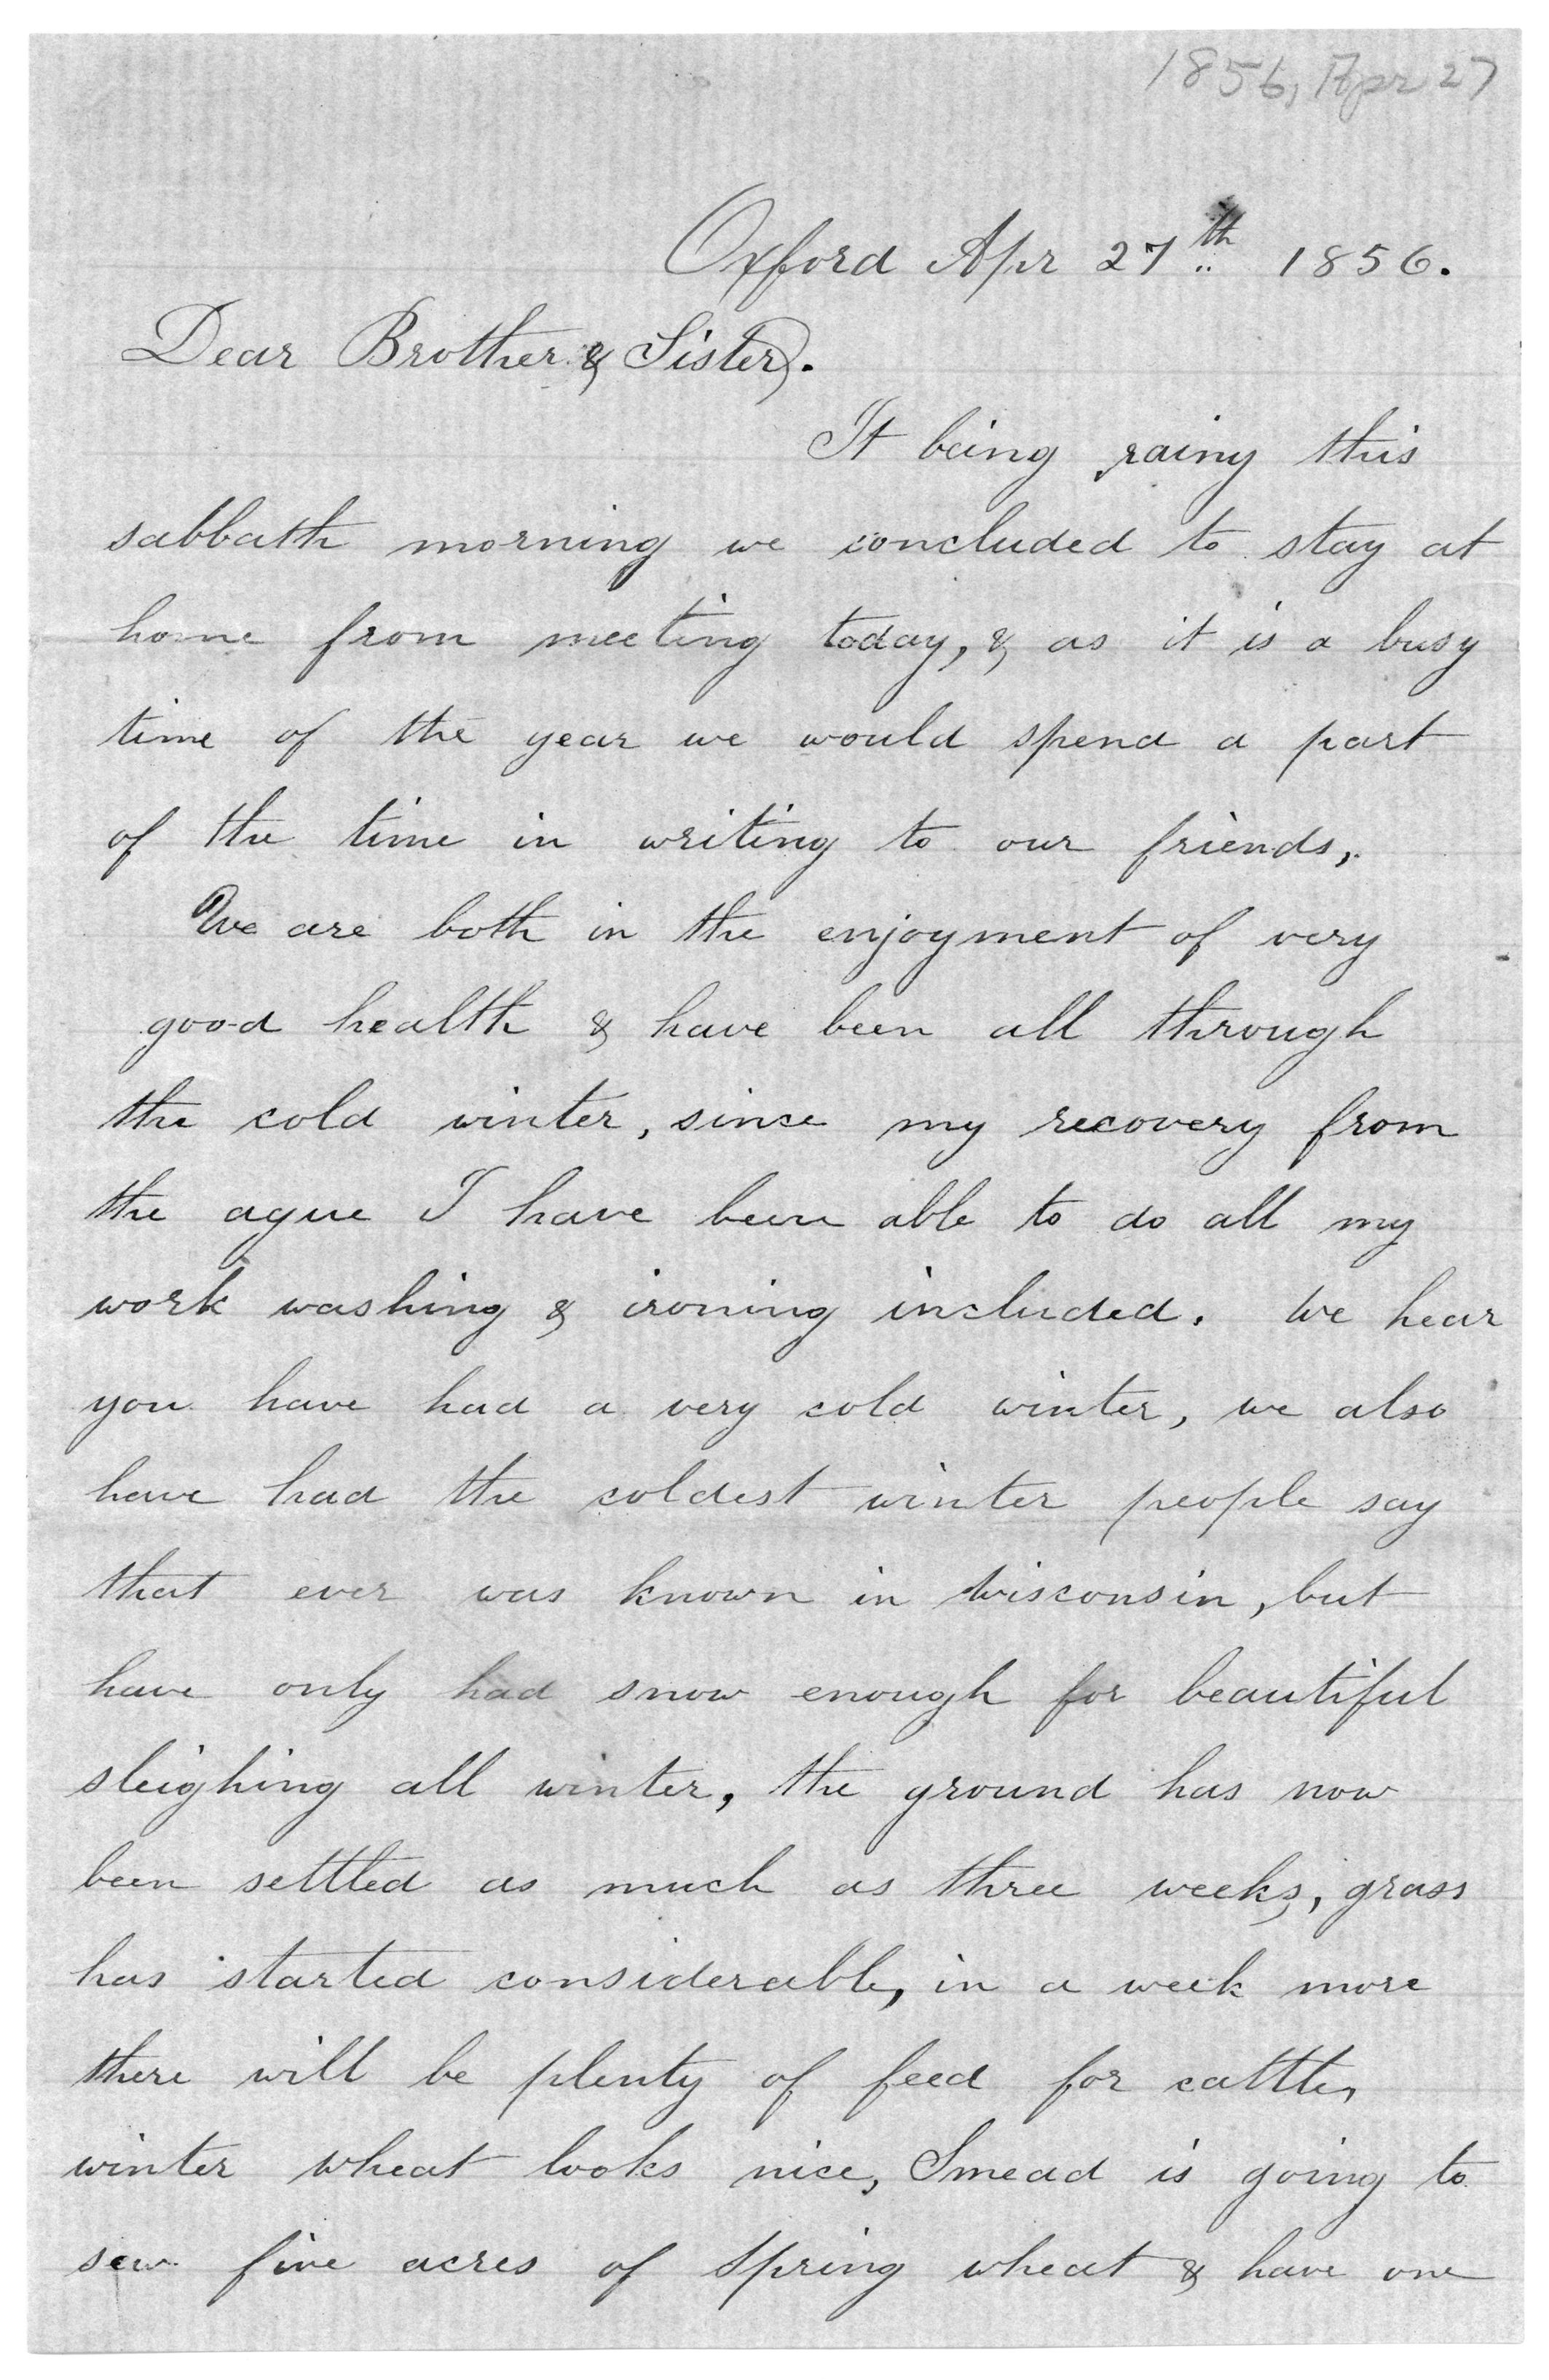 1856, Apr 27
Oxford Apr 27th 1856.
Dear Brother & Sister.
It being rainy this
sabbath morning we concluded to stay at
home from meeting today, & as it is a busy
time of the year we would spend a part
of the time in writing to our friends,
We are both in the enjoyment of very
good health & have been all through
the cold winter, since my recovery from
the ague I have been able to do all my
work washing & ironing included. We hear
you have had a very cold winter, we also
have had the coldest winter people say
that ever was known in Wisconsin, but
have only had snow enough for beautiful
sleighing all winter, the ground has now
been settled as much as three weeks, grass
has started considerable, in a week more
there will be plenty of feed for cattle,
winter wheat looks nice, Smead is going to
sew five acres of spring wheat & have one